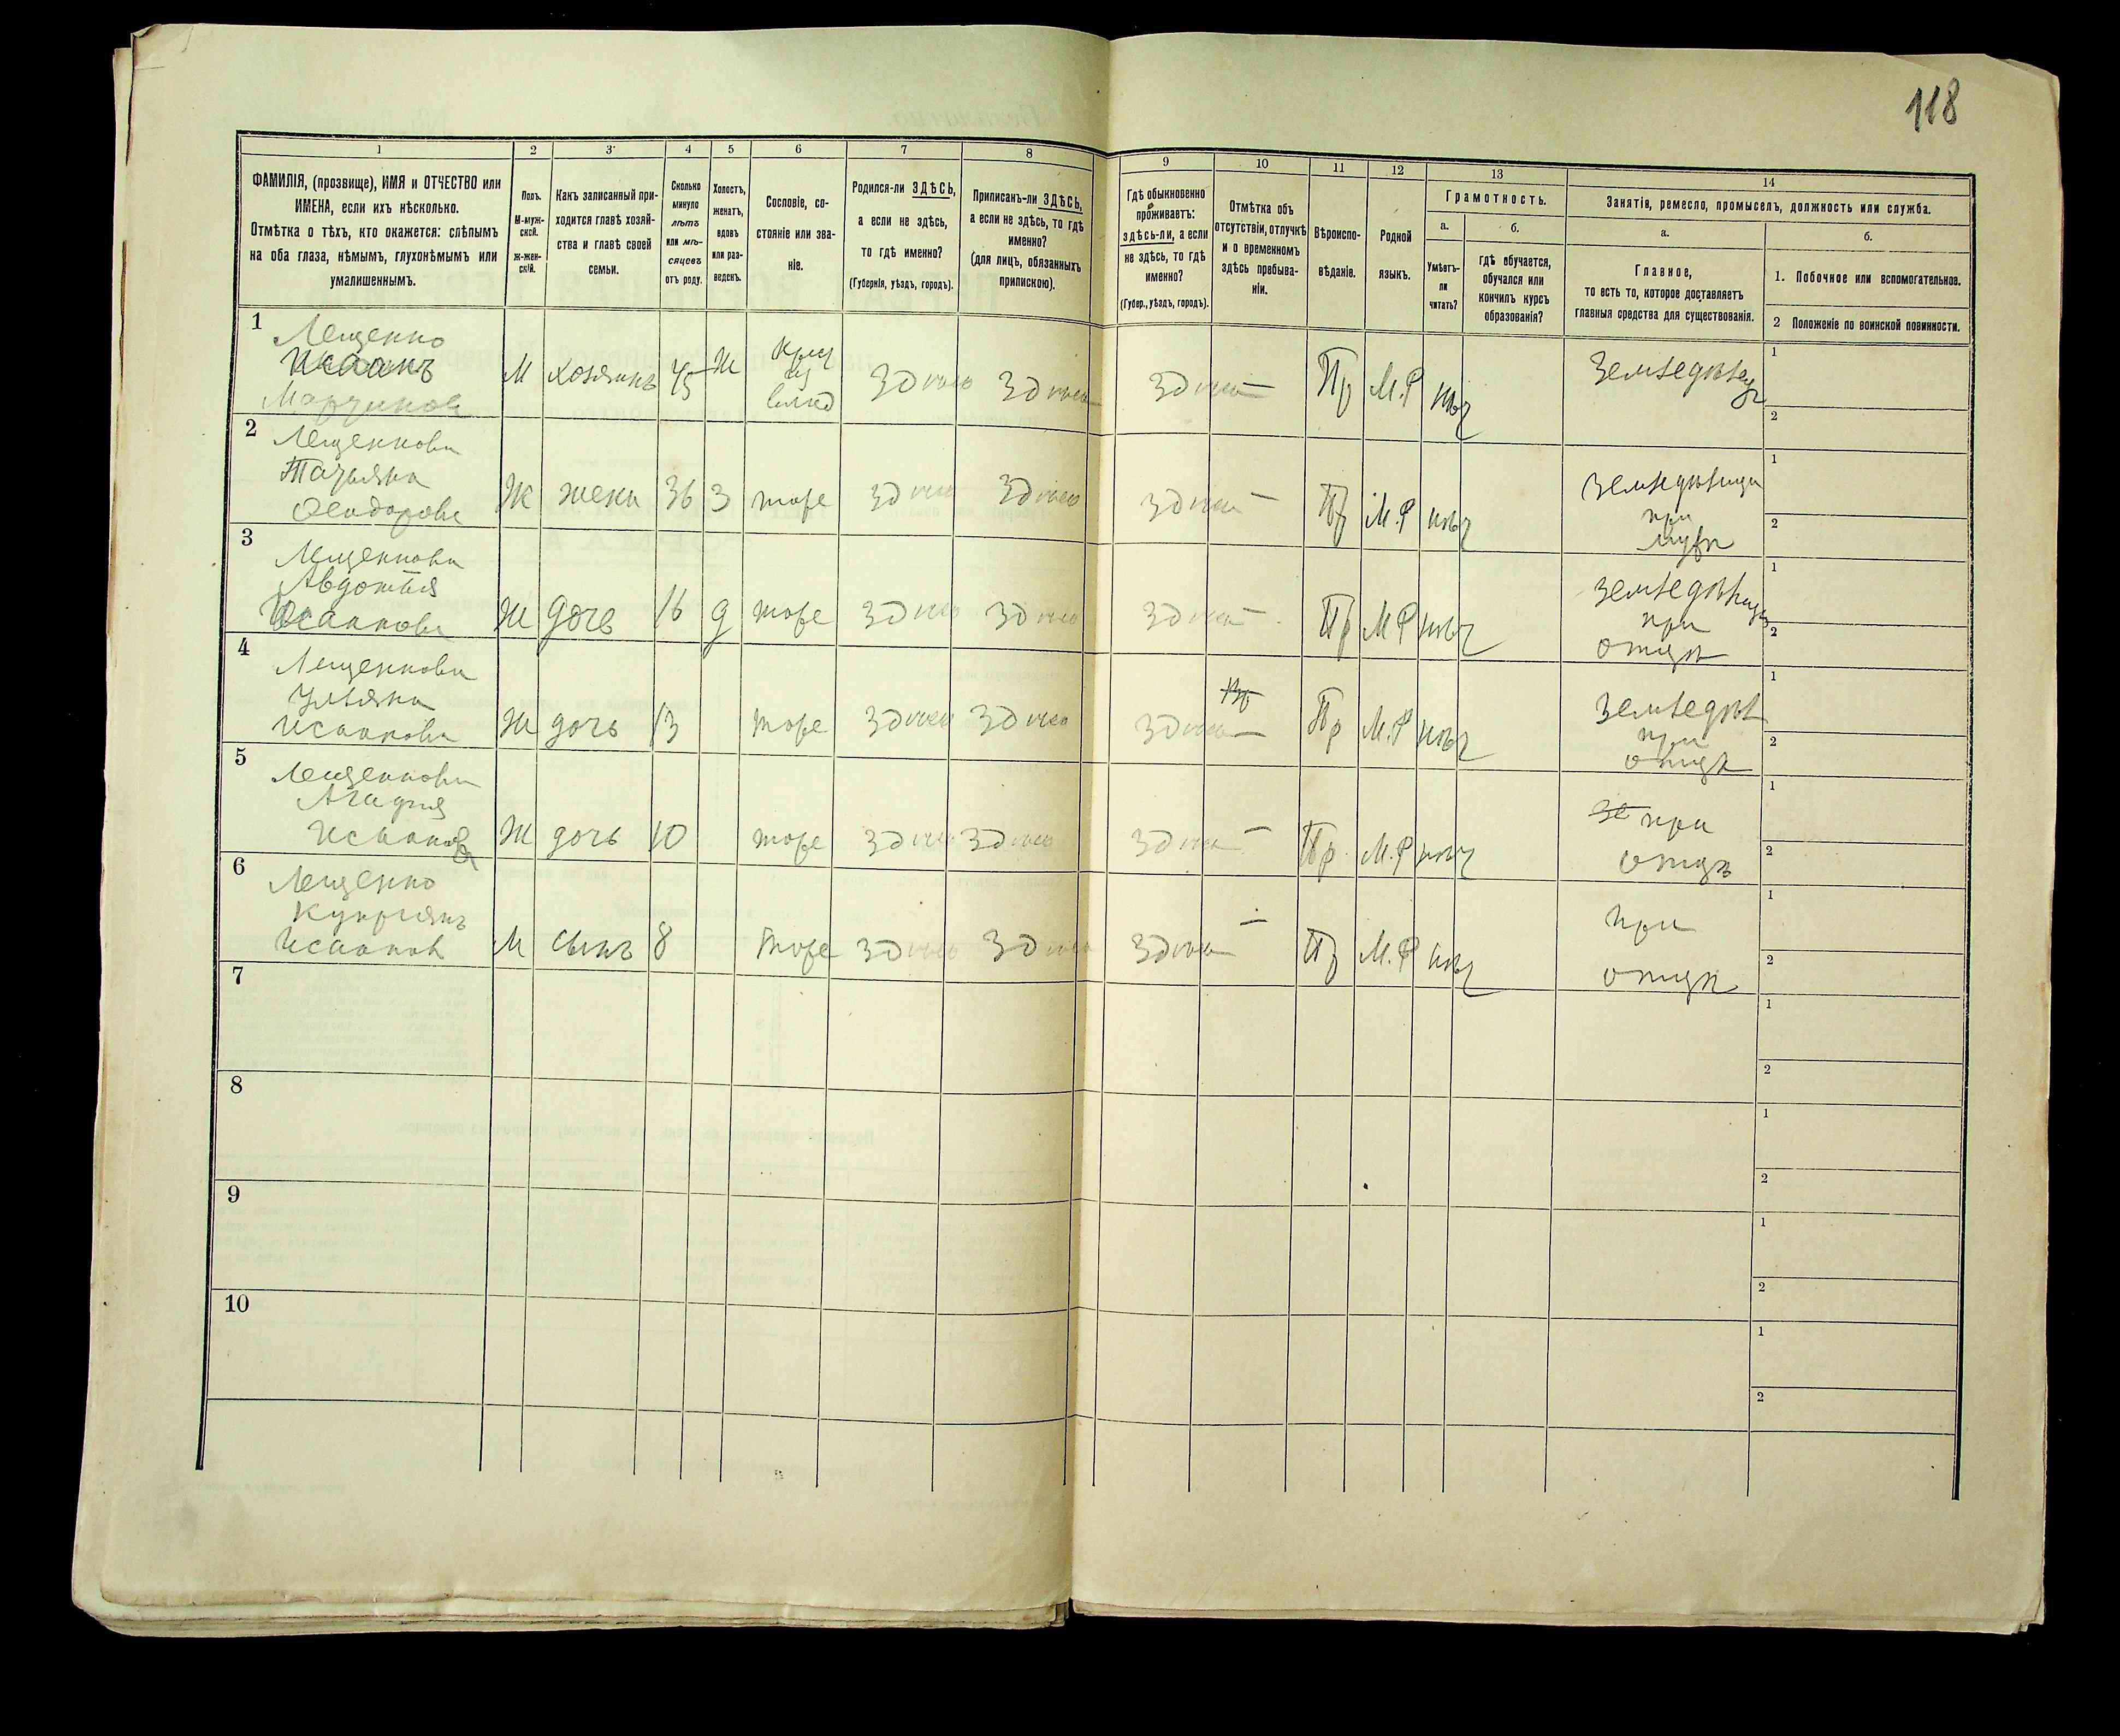 118
1
2
3
4
5
6
7
8
9
10
11
12
13
14
ФАМИЛІЯ, (прозвище), ИМЯ и ОТЧЕСТВО или
ИМЕНА, если ихъ нѣсколько.
Отмѣтка о тѣхъ, кто окажется: слѣпымъ
на оба глаза, нѣмымъ, глухонѣмымъ или
умалишеннымъ.
Полъ.
М-муж-
ской.
Ж-жен-
скій.
Какъ записанный при-
ходится главѣ хозяй-
ства и главѣ своей
семьи.
Сколько
минуло
лѣтъ
или мѣ-
сяцевъ
отъ роду.
Холостъ,
женатъ,
вдовъ
или раз-
веденъ.
Сословіе, со-
стояніе или зва-
ніе.
Родился-ли ЗДѢСЬ,
а если не здѣсь,
то гдѣ именно?
(Губернія, уѣздъ, городъ).
Приписанъ-ли ЗДѢСЬ,
а если не здѣсь, то гдѣ
именно?
(для лицъ, обязанныхъ
припискою).
Гдѣ обыкновенно
проживаетъ:
здѣсь-ли, а если
не здѣсь, то гдѣ
именно?
(Губер., уѣздъ, городъ).
Отмѣтка объ
отсутствіи, отлучкѣ
и о временномъ
здѣсь пребыва-
ніи.
Вѣроиспо-
вѣданіе.
Родной
языкъ.
Грамотность.
а.
Умѣетъ-
ли
читать?
б.
Гдѣ обучается,
обучался или
кончилъ курсъ
образованія?
Занятія, ремесло, промыселъ, должность или служба.
а.
Главное,
то есть то, которое доставляетъ
главныя средства для существованія.
б.
1. Побочное или вспомогательное.
2 Положеніе по воинской повинности.
1
Лещенко
Исаакъ
М хозяинъ 45 Ж Крест из владѣ здѣсь здѣсь здѣсь — Пр М.Р нѣт Земледѣлец
1
2
2
Лещенкова
Татьяна
Феодорова
Ж жена 36 З тоже здѣсь здѣсь здѣсь — Пр М.Р нѣт земледѣлица
при
мужѣ
1
2
3
Лещенкова
Авдотья
Исаакова
Ж дочь 16 д тоже здѣсь здѣсь здѣсь — Пр М.Р нѣт земледѣлица
при
отцѣ
1
2
4
Лещенкова
Ульяна
Исаакова
Ж дочь 13 тоже здѣсь здѣсь здѣсь — Пр М.Р нѣт земледѣл
при
отцѣ
1
2
5
Лещенкова
Исаакова
Ж дочь 10 тоже здѣсь здѣсь здѣсь — Пр. М.Р нѣт зе при
отцѣ
1
2
6
Лещенко
Куприянъ
Исааков
М сынъ 8 тоже здѣсь здѣсь здѣсь — Пр М.Р нѣт при
отцѣ
1
2
7
1
2
8
1
2
9
1
2
10
1
2